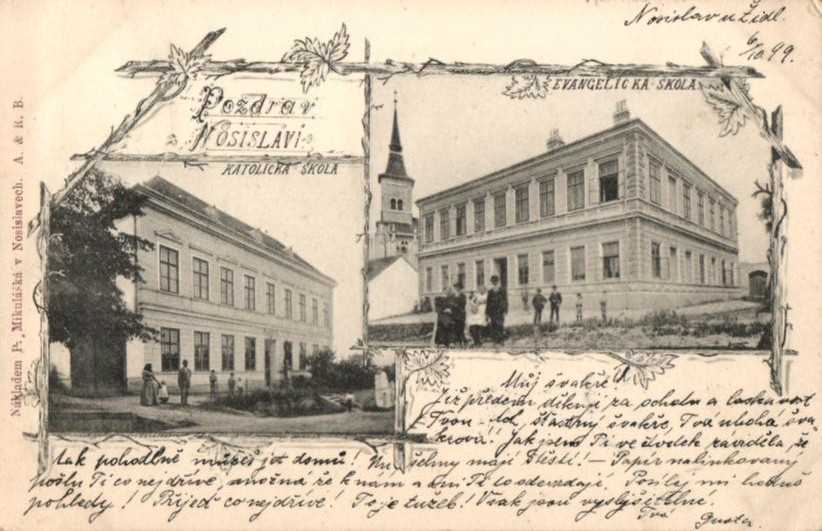 Nosislav u Židl.
6/10 99.
Pozdrav
z Nosislavi
KATOLICKÁ ŠKOLA
EVANGELICKÁ ŠKOLA
Nákladem P. Mikulášká v Nosislavech. A. & R. B.
Můj švakře
Již předem děkuji za ochotu a laskavost
Tvou šťastný švakře, Tvá ubohá šva-
krová! Jak jsem Ti ve středek záviděla, že
tak pohodlně můžeš jet domů! Nu šelmy mají štěstí! - Papír nalinkovaný
pošlu Ti co nejdříve, možná že k nám a ani Tě to odevzdají. Pošlej mi hodně
pohledy! Přijeď co nejdříve! To je tužeb! Však jsou vyslyšitelné.
Tvá